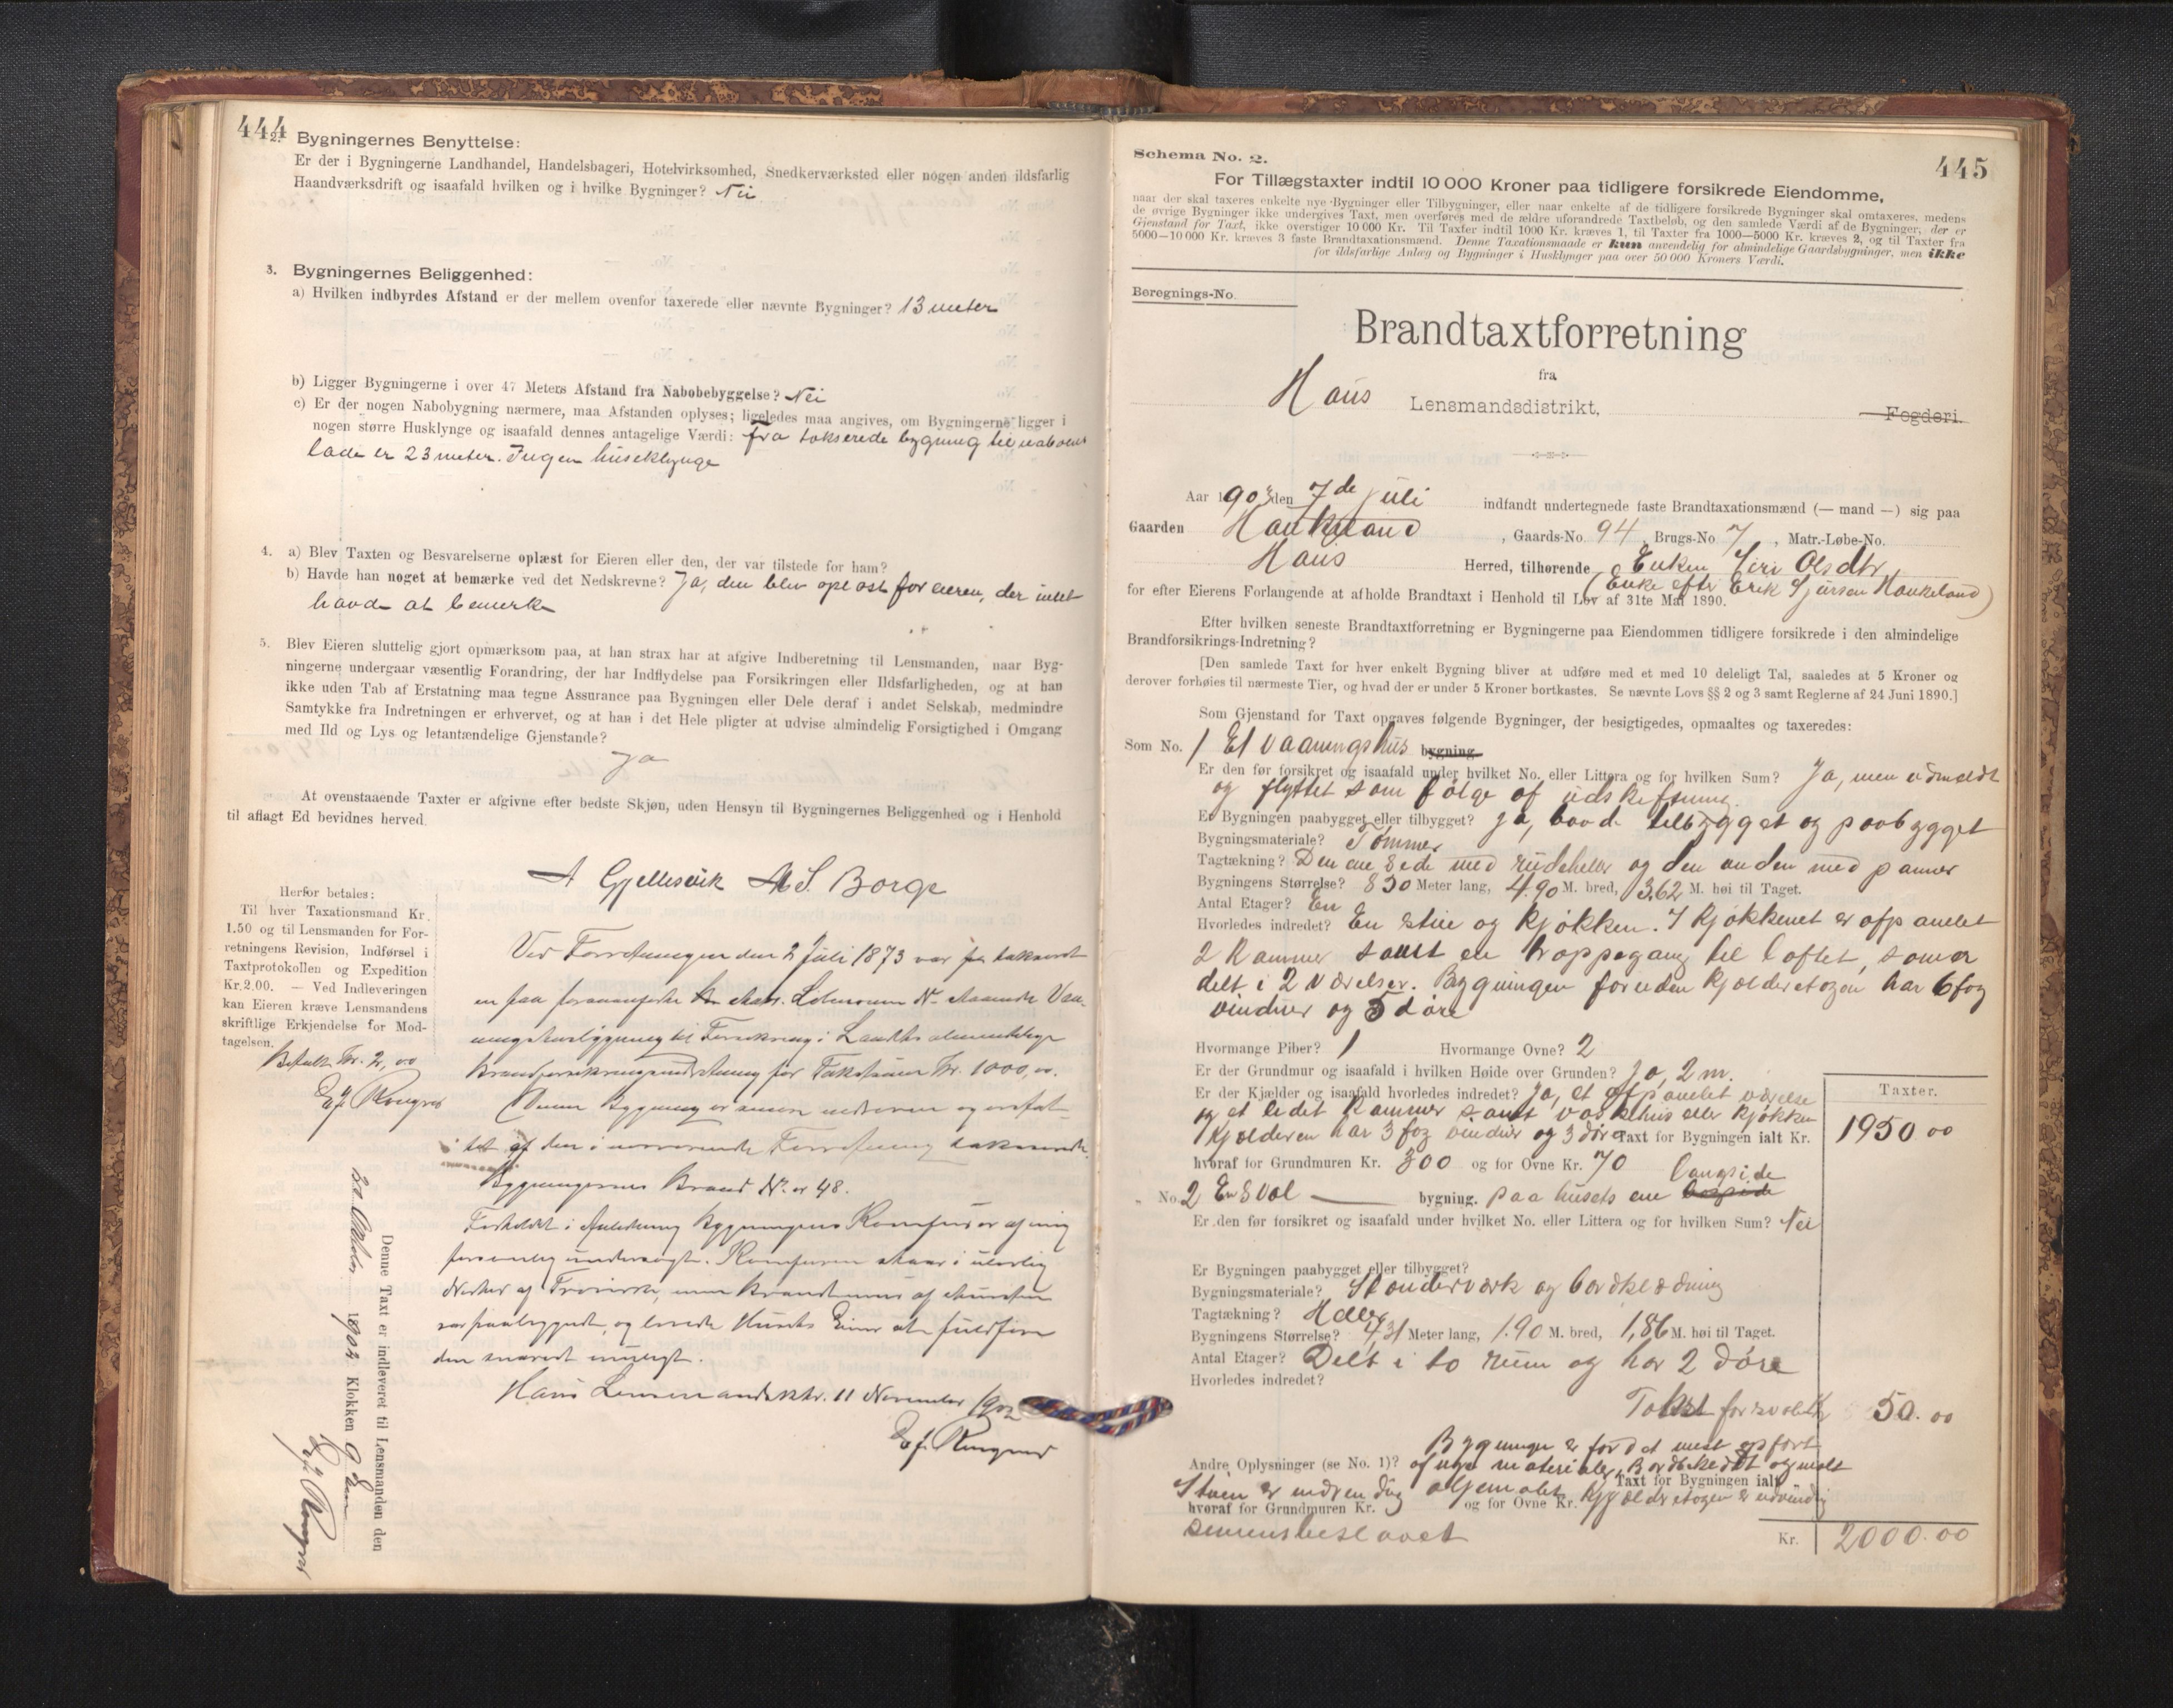 444
2. Bygningernes Benyttelse:
Er der i Bygningerne Landhandel, Handelsbageri, Hotelvirksomhed, Snedkerværksted eller nogen anden ildsfarlig
Haandværksdrift og isaafald hvilken og i hvilke Bygninger? Nei
3. Bygningernes Beliggenhed:
a) Hvilken indbyrdes Afstand er der mellem ovenfor taxerede eller nævnte Bygninger? 13 meter
b) Ligger Bygningerne i over 47 Meters Afstand fra Nabobebyggelse? Nei
c) Er der nogen Nabobygning nærmere, maa Afstanden oplyses; ligeledes maa angives, om Bygningerne ligger i
nogen større Husklynge og isaafald dennes antagelige Værdi: fra takserede bygning til naboens
lade er 23 meter. Ingen huseklynge
4. a) Blev Taxten og Besvarelserne oplæst for Eieren eller den, der var tilstede for ham?
b) Havde han noget at bemærke ved det Nedskrevne? Ja, den blev oplæst for eieren, der intet
havde at bemerke
5. Blev Eieren sluttelig gjort opmærksom paa, at han strax har at afgive Indberetning til Lensmanden, naar Byg-
ningerne undergaar væsentlig Forandring, der har Indflydelse paa Forsikringen eller Ildsfarligheden, og at han
ikke uden Tab af Erstatning maa tegne Assurance paa Bygningen eller Dele deraf i andet Selskab, medmindre
Samtykke fra Indretningen er erhvervet, og at han i det Hele pligter at udvise almindelig Forsigtighed i Omgang
med Ild og Lys og letantændelige Gjenstande?
Ja
At ovenstaaende Taxter er afgivne efter bedste Skjøn, uden Hensyn til Bygningernes Beliggenhed og i Henhold
til aflagt Ed bevidnes herved.
A Gjellesvik M S. Borge
Herfor betales:
Til hver Taxationsmand Kr.
1.50 og til Lensmanden for For-
retningens Revision, Indførsel i
Taxtprotokollen og Expedition
Kr. 2.00. — Ved Indleveringen
kan Eieren kræve Lensmandens
skriftlige Erkjendelse for Mod-
tagelsen.
Betalt Kr. 2,00
Ved Forretningen den 2 Juli 1873 var for takseret
en paa foranførte Matr. Løbenummer No staaende Vaa-
ningshusbygning til Forsikring i Landets almindelige
Brandforsikringsindretning for Takstsum Kr. 1000,00.
Denne Bygning er senere nedreven og erstat-
tet af den i nærværende Forretning takserede.
Bygningernes Brand No. er 48.
Forholdet i Anledning Bygningens Komfur er af mig
personlig undersøgt. Komfuren staar i ulovlig
Nærhed af Trævirke, men Brandmur af Mursten
var paabegyndt, og lovede Husets Eier at fuldføre
den snarest muligt.
Haus Lensmandsktr. 11 November 1902
Denne Taxt er indleveret til Lensmanden den
Oktober 1902 Klokken 9 Em
Schema No. 2.
445
For Tillægstaxter indtil 10 000 Kroner paa tidligere forsikrede Eiendomme,
naar der skal taxeres enkelte nye Bygninger eller Tilbygninger, eller naar enkelte af de tidligere forsikrede Bygninger skal omtaxeres, medens
de øvrige Bygninger ikke undergives Taxt, men overføres med de ældre uforandrede Taxtbeløb, og den samlede Værdi af de Bygninger, der er
Gjenstand for Taxt, ikke overstiger 10 000 Kr. Til Taxter indtil 1000 Kr. kræves 1, til Taxter fra 1000—5000 Kr. kræves 2, og til Taxter fra
5000—10 000 Kr. kræves 3 faste Brandtaxationsmænd. Denne Taxationsmaade er kun anvendelig for almindelige Gaardsbygninger, men ikke
for ildsfarlige Anlæg og Bygninger i Husklynger paa over 50 000 Kroners Værdi.
Beregnings-No.
Brandtaxtforretning
fra
Haus Lensmandsdistrikt, Fogderi.
Aar 190 den 7de Juli indfandt undertegnede faste Brandtaxationsmænd (— mand —) sig paa
Gaarden Haukeland, Gaards-No. 94, Brugs-No 7, Matr.-Løbe-No.
Haus Herred, tilhørende Enken Siri Olsdtr
(Enke efter Erik Sjursen Haukeland)
for efter Eierens Forlangende at afholde Brandtaxt i Henhold til Lov af 31te Mai 1890.
Efter hvilken seneste Brandtaxtforretning er Bygningerne paa Eiendommen tidligere forsikrede i den almindelige
Brandforsikrings-Indretning?
[Den samlede Taxt for hver enkelt Bygning bliver at udføre med et med 10 deleligt Tal, saaledes at 5 Kroner og
derover forhøies til nærmeste Tier, og hvad der er under 5 Kroner bortkastes. Se nævnte Lovs §§ 2 og 3 samt Reglerne af 24 Juni 1890.]
Som Gjenstand for Taxt opgaves følgende Bygninger, der besigtigedes, opmaaltes og taxeredes:
Som No. 1 Et vaaningshus bygning
Er den før forsikret og isaafald under hvilket No. eller Littera og for hvilken Sum? Ja, men
og flyttet som følge af udskiftning.
Er Bygningen paabygget eller tilbygget? Ja, baade tilbygget og paabygget
Bygningsmateriale? Tømmer
Tagtækning? Den ene side med rudeheller og den anden med panner
Bygningens Størrelse? 830 Meter lang, 4.90 M. bred, 3,62 M. høi til Taget.
Antal Etager? En
Hvorledes indredet? En stue og kjøkken. I kjøkkenet er afpanelet
2 kammer samt en trappegang til loftet, som er
delt i 2 værelser. Bygningen foruden kjælderetagen har 6 fag
vinduer og 5 døre
Hvormange Piber? 1 Hvormange Ovne? 2
Er der Grundmur og isaafald i hvilken Høide over Grunden? Ja, 2 m.
Er der Kjælder og isaafald hvorledes indredet? Ja, et afpanelet værelse
og et lidet kammer samt vaskehus eller kjøkken
Kjælderen har 3 fag vinduer og 3 døre Taxt for Bygningen ialt Kr.
Taxter.
1950 00
hvoraf for Grundmuren Kr. 300 og for Ovne Kr. 70
langside
" No. 2 En Sval bygning. paa husets ene
Er den før forsikret og isaafald under hvilket No. eller Littera og for hvilken Sum? Nei
Er Bygningen paabygget eller tilbygget?
Bygningsmateriale? Standerværk og bordklædning
Tagtækning? Heller
Bygningens Størrelse? 4,31 Meter lang, 1.90 M. bred, 1,86 M. høi til Taget.
Antal Etager? Delt i to rum og har 2 døre
Hvorledes indredet?
Takst for svalen Kr 50.00
Bygningen er for det mest opført
Andre Oplysninger (se No. 1)? af nye materialer, Bordklædt og malt
Taxt for Bygningen ialt
Stuen er indvendig oljemalet. Kjælderetagen er udvendig
hvoraf for Grundmuren Kr. og for Ovne Kr.
sementbeslaaet
Kr. 2000.00